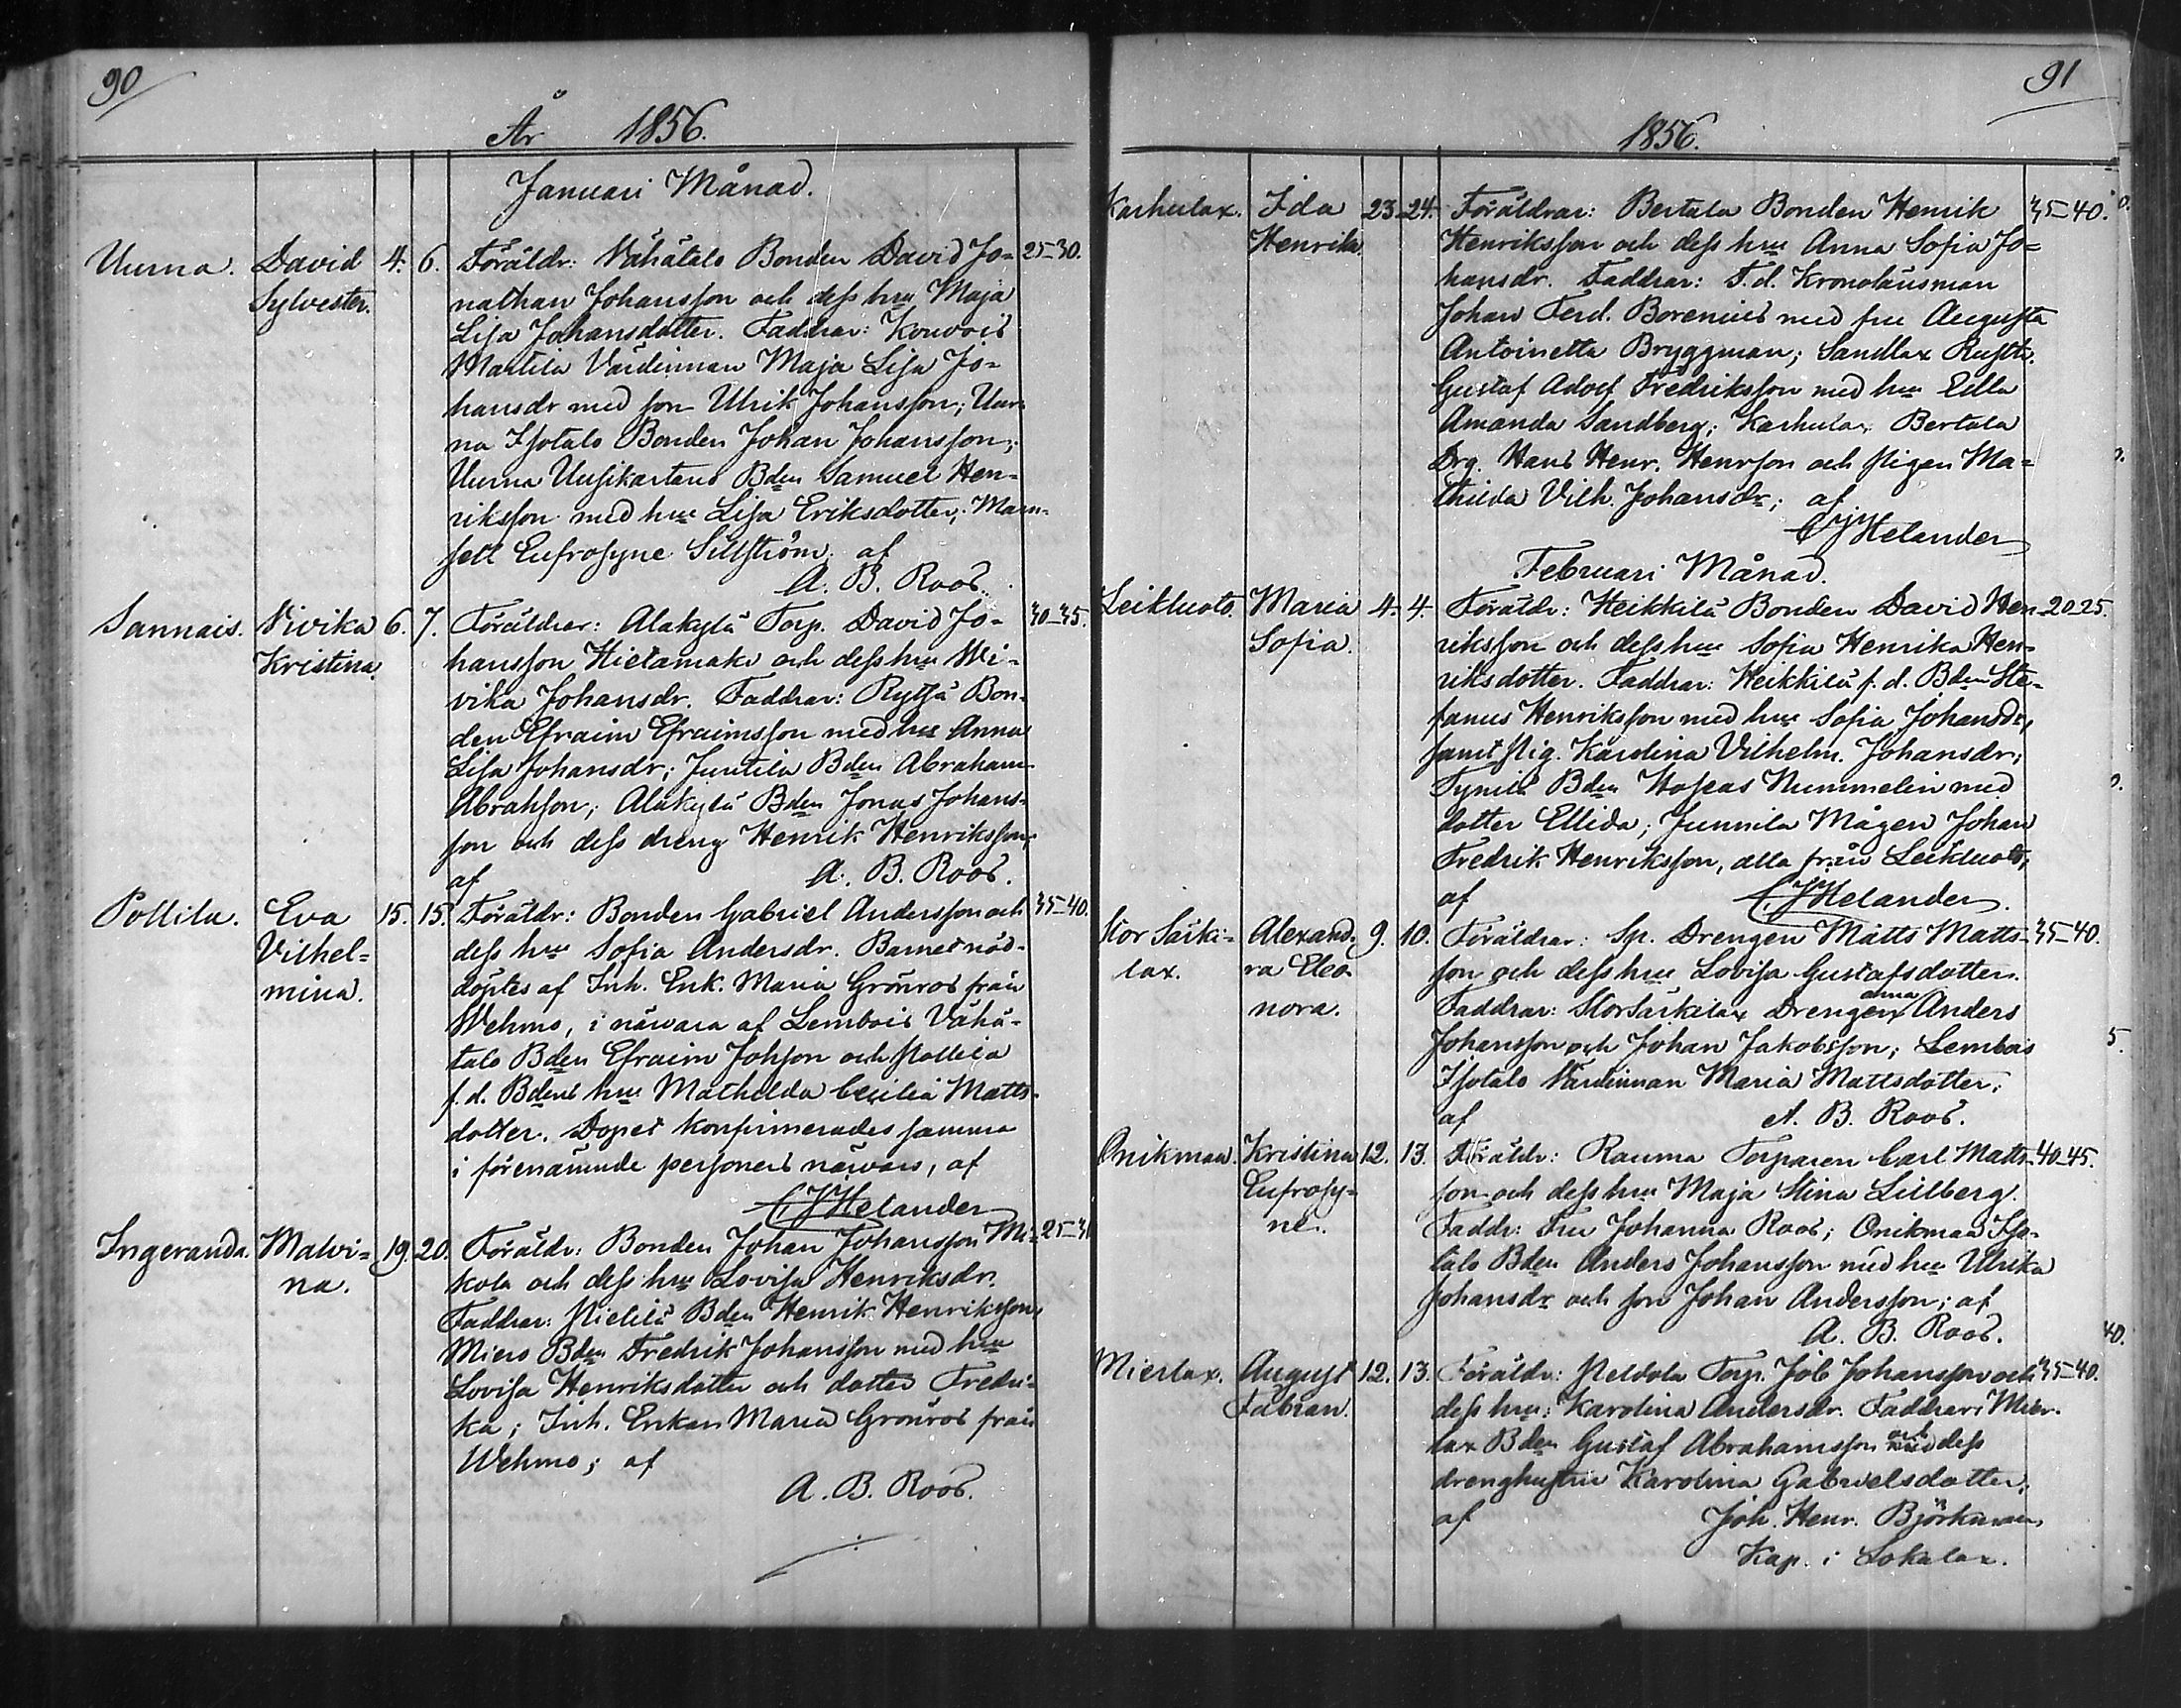 90
År 1856.
Januari Månad.
Uurna. David 4. 6. Föräldr: Vähätalo Bonden David Jo- 25-30.
Sylvester. nathan Johansson och dess hru Maja
Lisa Johansdotter. Faddrar: Kouvois
Martila Värdinnan Maja Lisa Jo-
hansdr med son Ulrik Johansson; Uur-
na Isotalo Bonden Johan Johansson;
Uurna Uusikartano Bden Samuel Hen-
riksson med hru Lisa Eriksdotter; Mam-
sell Eufrosyne Sillström. af
A. B. Roos.
Sannais. Vivika 6. 7. Föräldrar: Alakylä Torp. David Jo- 30-35.
Kristina. hansson Hietamäki och dess hru Wi-
vika Johansdr. Faddrar: Rytsä Bon-
den Efraim Efraimsson med hru Anna
Lisa Johansdr; Juntila Bden Abraham
Abrahsson; Alakylä Bden Jonas Johans-
son och dess dreng Henrik Henriksson,
af A. B. Roos.
Pollila. Eva 15. 15. Föräldr: Bonden Gabriel Andersson och 35-40.
Vilhel- dess hru Sofia Andersdr. Barnet nöd-
mina. döptes af Inh. Enk. Maria Grönros från
Wehmo, i närvara af Lembois Vähä-
talo Bden Efraim Johsson och Pollila
f. d. Bdens hru Mathilda Cecilia Matts-
dotter. Dopet konfirmerades samma
i förenämnde personers närvaro, af
CJHelander
Ingeranda. Malvi- 19. 20. Föräldr: Bonden Johan Johansson Mi- 25-30
na. kola och dess hru Lovisa Henriksdr.
Faddrar: Pietilä Bden Henrik Henriksson,
Miero Bden Fredrik Johansson med hru
Lovisa Henriksdotter och dotter Fredri-
ka; Inh. Enkan Maria Grönros från
Wehmo; af
A. B. Roos.
91
1856.
Karhulax. Ida 23. 24. Föräldrar: Bertala Bonden Henrik 35-40.
Henrika. Henriksson och dess hru Anna Sofia Jo-
hansdr. Faddrar: F. d. Kronolänsman
Johan Ferd. Borenius med fru Augusta
Antoinetta Bryggman; Sandlax Rustth.
Gustaf Adolf Fredriksson med hru Edla
Amanda Sandberg; Karhulax Bertala
Drg. Hans Henr. Henrsson och pigan Ma-
thilda Vilh. Johansdr; af
CJHelander
Februari Månad.
Leikluoto. Maria 4. 4. Föräldr: Heikkilä Bonden David Hen- 20-25.
Sofia. riksson och dess hru Sofia Henrika Hen-
riksdotter. Faddrar: Heikkilä f. d. Bden Ste-
fanus Henriksson med hru Sofia Johansdr,
samt pig. Karolina Vilhelm. Johansdr;
Tynilä Bden Hoseas Nummelin med
dotter Ellida; Junnila Mågen Johan
Fredrik Henriksson, alla från Leikluoto,
af CJHelander.
Stor Särki- Alexand- 9. 10. Föräldrar: Sp. Drengen Matts Matts- 35-40.
lax. ra Eleo- son och dess hru Lovisa Gustafsdotter.
nora. Faddrar: Storsärkilax Drengarna Anders
Johansson och Johan Jakobsson; Lembois
Isotalo Värdinnan Maria Mattsdotter;
af A. B. Roos.
Onikmaa. Kristina 12. 13. Föräldr: Rauma Torparen Carl Matts- 40-45.
Eufrosy- son och dess hru Maja Stina Lillberg.
ne. Faddr: Fru Johanna Roos; Onikmaa Iso-
talo Bden Anders Johansson med hru Ulrika
Johansdr och son Johan Andersson; af
A. B. Roos.
Mierlax. August 12. 13. Föräldr: Peldola Torp. Job Johansson och 35-40.
Fabian. dess hru: Karolina Andersdr. Faddrar: Mier-
lax Bden Gustaf Abrahamsson och dess
drenghustru Karolina Gabrielsdotter;
af Joh. Henr. Björkman,
Kap. i Lokalax.